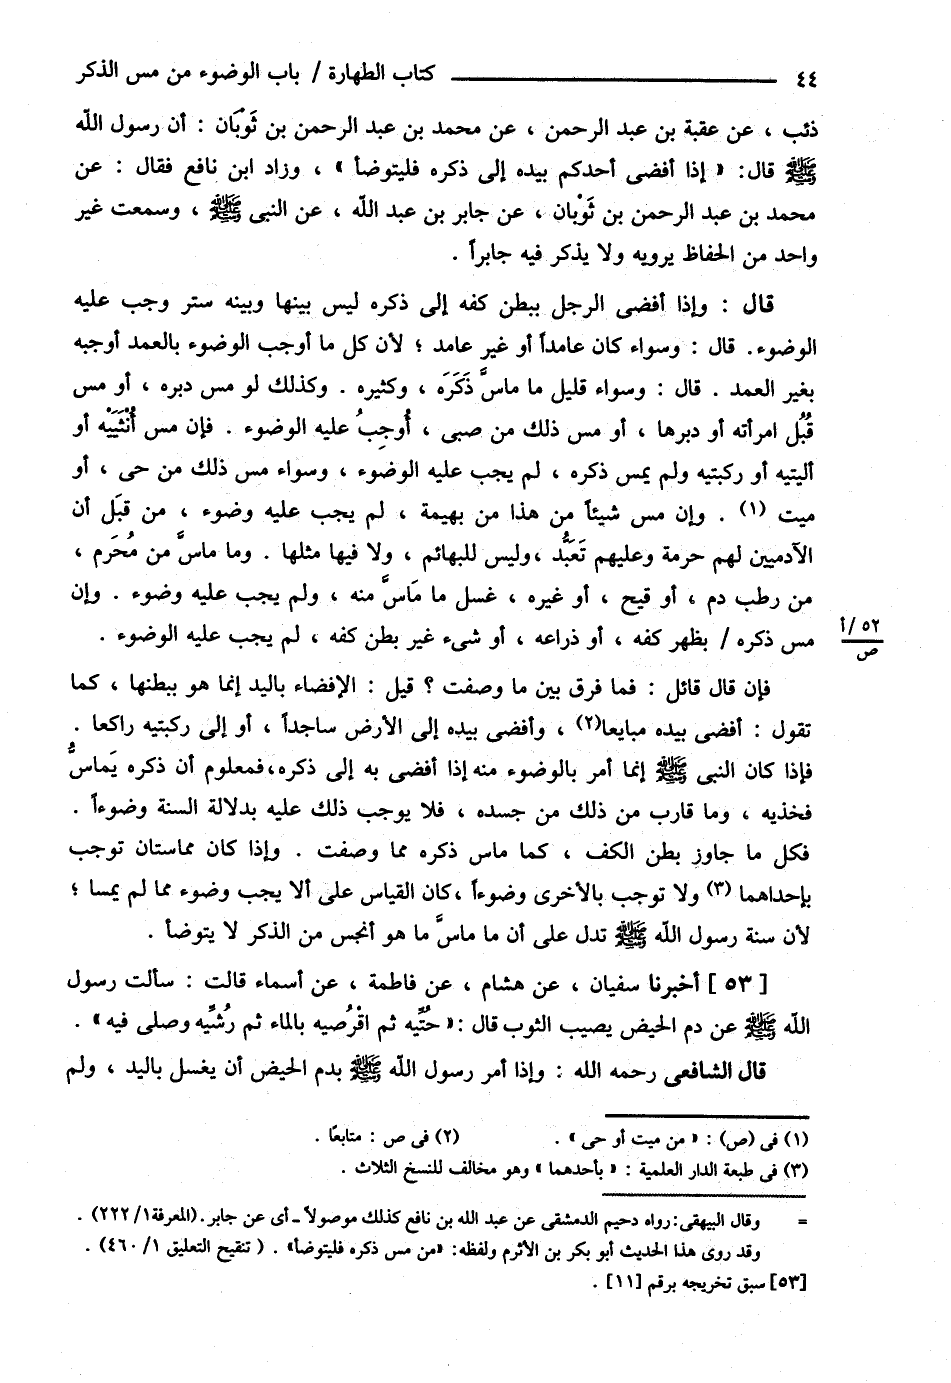 ٤٤ ــــــــــــــــــــــــــــــــــــــــــــ كتاب الطهارة / باب الوضوء من مس الذكر
ذئب ، عن عقبة بن عبد الرحمن ، عن محمد بن عبد الرحمن بن ثَوْبَان : أن رسول الله
ﷺ قال: « إذا أفضى أحدكم بيده إلى ذكره فليتوضأ » ، وزاد ابن نافع فقال : عن
محمد بن عبد الرحمن بن ثَوْبان ، عن جابر بن عبد الله ، عن النبى ﷺ ، وسمعت غير
واحد من الحفاظ يرويه ولا يذكر فيه جابراً .
قال : وإذا أفضى الرجل ببطن كفه إلى ذكره ليس بينها وبينه ستر وجب عليه
الوضوء. قال : وسواء كان عامداً أو غير عامد ؛ لأن كل ما أوجب الوضوء بالعمد أوجبه
بغير العمد . قال : وسواء قليل ما ماسَّ ذَكَرَه ، وكثيره . وكذلك لو مس دبره ، أو مس
قُبُل امرأته أو دبرها ، أو مس ذلك من صبى ، أُوجِبُ عليه الوضوء . فإن مس أُنْثَيَيْه أو
أليتيه أو ركبتيه ولم يمس ذكره ، لم يجب عليه الوضوء ، وسواء مس ذلك من حى ، أو
ميت (١) . وإن مس شيئاً من هذا من بهيمة ، لم يجب عليه وضوء ، من قبَل أن
الآدميين لهم حرمة وعليهم تَعَبُّد ،وليس للبهائم ، ولا فيها مثلها . وما ماسَّ من مُحَرم ،
من رطب دم ، أو قيح ، أو غيره ، غسل ما مَاسَّ منه ، ولم يجب عليه وضوء . وإن
مس ذكره / بظهر كفه ، أو ذراعه ، أو شىء غير بطن كفه ، لم يجب عليه الوضوء .
٥٢ /أ
ص
فإن قال قائل : فما فرق بين ما وصفت ؟ قيل : الإفضاء باليد إنما هو ببطنها ، كما
تقول : أفضى بيده مبايعا(٢) ، وأفضى بيده إلى الأرض ساجداً ، أو إلى ركبتيه راكعا .
فإذا كان النبى ﷺ إنما أمر بالوضوء منه إذا أفضى به إلى ذكره،فمعلوم أن ذكره يَماسُّ
فخذيه ، وما قارب من ذلك من جسده ، فلا يوجب ذلك عليه بدلالة السنة وضوءاً .
فكل ما جاوز بطن الكف ، كما ماس ذكره مما وصفت . وإذا كان مماستان توجب
بإحداهما (٣) ولا توجب بالأخرى وضوءاً ،كان القياس على ألا يجب وضوء مما لم يمسا ؛
لأن سنة رسول الله ﷺ تدل على أن ما ماسَّ ما هو أنجس من الذكر لا يتوضأ .
[ ٥٣ ] أخبرنا سفيان ، عن هشام ، عن فاطمة ، عن أسماء قالت : سألت رسول
الله ﷺ عن دم الحيض يصيب الثوب قال :« حُتِّيه ثم اقْرُصيه بالماء ثم رُشِّيه وصلى فيه» .
قال الشافعى رحمه الله : وإذا أمر رسول الله ﷺ بدم الحيض أن يغسل باليد ، ولم
(١) فى (ص) : « من ميت أو حى» . (٢) فى ص : متابعًا .
(٣) فى طبعة الدار العلمية : « بأحدهما » وهو مخالف للنسخ الثلاث .
= وقال البيهقى: رواه دحيم الدمشقى عن عبد الله بن نافع كذلك موصولاً ـ أى عن جابر. (المعرفة١/ ٢٢٢) .
وقد روى هذا الحديث أبو بكر بن الأثرم ولفظه: «من مس ذكره فليتوضأ» . ( تنقيح التعليق ١/ ٤٦٠) .
[٥٣] سبق تخريجه برقم [١١] .